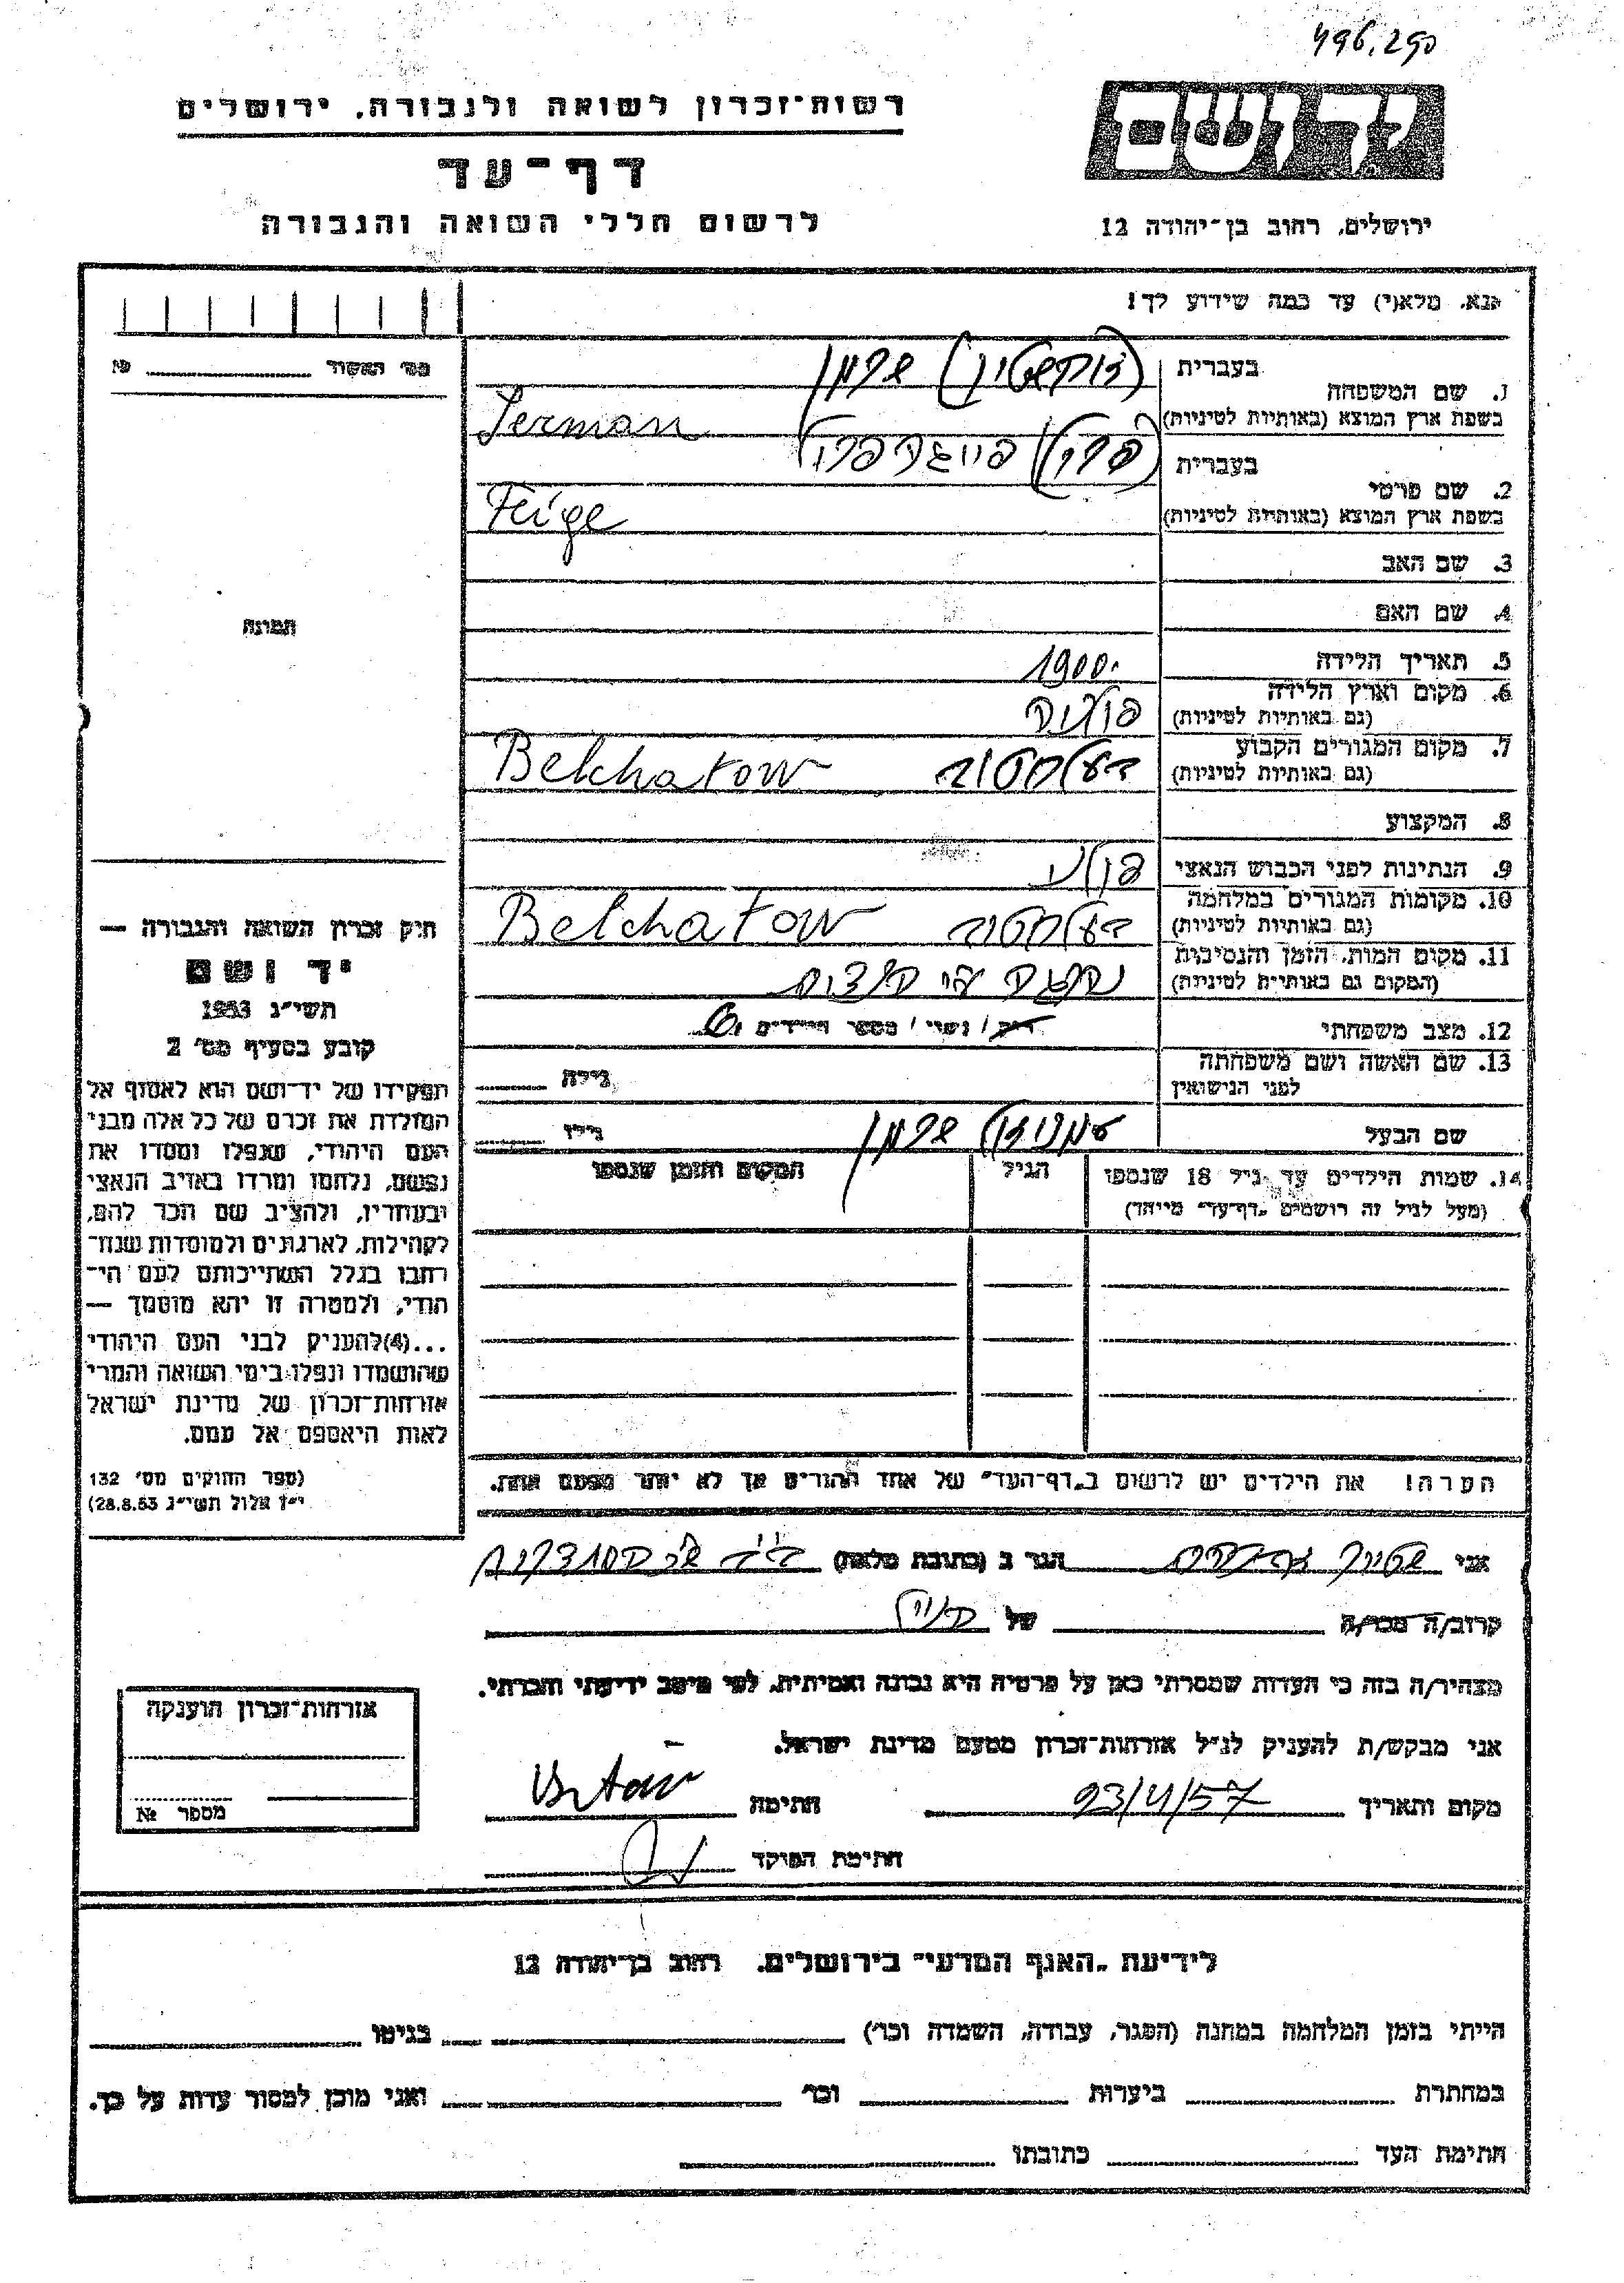 496.290
יד ושם
רשות־זכרון לשואה ולגבורה, ירושלים
דף־עד
לרשום חללי השואה והגבורה
ירושלים, רחוב בן־יהודה 12
נא, מלא(י) עד כמה שידוע לך!
מס׳ האשור
בעברית
שרמן
1. שם המשפחה
בשפת ארץ המוצא (באותיות לטיניות)
Serman
בעברית
2. שם פרטי
בשפת ארץ המוצא (באותיות לטיניות)
Feige
3. שם האב
4. שם האם
תמונה
5. תאריך הלידה
1900
6. מקום וארץ הלידה
(גם באותיות לטיניות)
פולניה
7. מקום המגורים הקבוע
(גם באותיות לטיניות)
בעלחטוב Belchatow
8. המקצוע
9. הנתינות לפני הכבוש הנאצי
10. מקומות המגורים במלחמה
(גם באותיות לטיניות)
בעלחטוב Belchatow
11. מקום המות, הזמן והנסיבות
(המקום גם באותיות לטיניות)
12. מצב משפחתי
רוק / נשוי / מספר הילדים 6
13. שם האשה ושם משפחתה
לפני הנישואין
גילה
שם הבעל
שרמן
גילו
14. שמות הילדים עד גיל 18 שנספו
(מעל לגיל זה רושמים „דף־עד״ מיוחד)
הגיל
המקום והזמן שנספו
חוק זכרון השואה והגבורה —
יד ושם
תשי״ג 1953
קובע בסעיף מס׳ 2
תפקידו של יד־ושם הוא לאסוף אל
המולדת את זכרם של כל אלה מבני
העם היהודי, שנפלו ומסרו את
נפשם, נלחמו ומרדו באויב הנאצי
ובעוזריו, ולהציב שם וזכר להם,
לקהילות, לארגונים ולמוסדות שנח־
רבו בגלל השתייכותם לעם הי־
הודי, ולמטרה זו יהא מוסמך —
...(4)להעניק לבני העם היהודי
שהושמדו ונפלו בימי השואה והמרי
אזרחות־זכרון של מדינת ישראל
לאות היאספם אל עמם.
(ספר החוקים מס׳ 132
י״ז אלול תשי״ג 28.8.53)
הערה! את הילדים יש לרשום ב„דף־העד״ של אחד ההורים אך לא יותר מפעם אחת.
אני
הגר ב (כתובת מלאה)
קרוב/ה מכר/ה
של
מצהיר/ה בזה כי העדות שמסרתי כאן על פרטיה היא נכונה ואמיתית, לפי מיטב ידיעתי והכרתי.
אני מבקש/ת להעניק לנ״ל אזרחות־זכרון מטעם מדינת ישראל.
מקום ותאריך 23/4/57 חתימה
חתימת הפוקד
אזרחות־זכרון הוענקה
מספר №
לידיעת „האגף המדעי״ בירושלים, רחוב בן־יהודה 12
הייתי בזמן המלחמה במחנה (הסגר, עבודה, השמדה וכו׳) בגיטו
במחתרת ביערות וכו׳ ואני מוכן למסור עדות על כך.
חתימת העד כתובתו